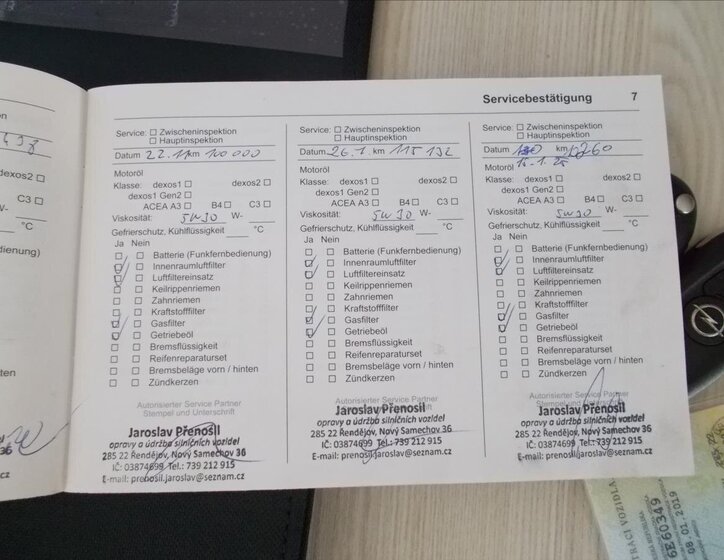 Servicebestätigung 7
Service: Zwischeninspektion
Hauptinspektion
Datum 22.11 km 100 000
Motoröl
Klasse: dexos1 dexos2
dexos1 Gen2
ACEA A3 B4 C3
Viskosität: 5W30 W-
Gefrierschutz, Kühlflüssigkeit °C
Ja Nein
Batterie (Funkfernbedienung)
Innenraumluftfilter
Luftfiltereinsatz
Keilrippenriemen
Zahnriemen
Kraftstofffilter
Gasfilter
Getriebeöl
Bremsflüssigkeit
Reifenreparaturset
Bremsbeläge vorn / hinten
Zündkerzen
Autorisierter Service Partner
Stempel und Unterschrift
Jaroslav Přenosil
opravy a údržba silničních vozidel
285 22 Řendějov, Nový Samechov 36
IČ: 03874699 Tel.: 739 212 915
E-mail: prenosil.jaroslav@seznam.cz
Service: Zwischeninspektion
Hauptinspektion
Datum 26.1 km 115 132
Motoröl
Klasse: dexos1 dexos2
dexos1 Gen2
ACEA A3 B4 C3
Viskosität: 5W30 W-
Gefrierschutz, Kühlflüssigkeit °C
Ja Nein
Batterie (Funkfernbedienung)
Innenraumluftfilter
Luftfiltereinsatz
Keilrippenriemen
Zahnriemen
Kraftstofffilter
Gasfilter
Getriebeöl
Bremsflüssigkeit
Reifenreparaturset
Bremsbeläge vorn / hinten
Zündkerzen
Autorisierter Service Partner
Stempel und Unterschrift
Jaroslav Přenosil
opravy a údržba silničních vozidel
285 22 Řendějov, Nový Samechov 36
IČ: 03874699 Tel.: 739 212 915
E-mail: prenosil.jaroslav@seznam.cz
Service: Zwischeninspektion
Hauptinspektion
Datum km
15.1.25
Motoröl
Klasse: dexos1 dexos2
dexos1 Gen2
ACEA A3 B4 C3
Viskosität: 5W30 W-
Gefrierschutz, Kühlflüssigkeit °C
Ja Nein
Batterie (Funkfernbedienung)
Innenraumluftfilter
Luftfiltereinsatz
Keilrippenriemen
Zahnriemen
Kraftstofffilter
Gasfilter
Getriebeöl
Bremsflüssigkeit
Reifenreparaturset
Bremsbeläge vorn / hinten
Zündkerzen
Autorisierter Service Partner
Stempel und Unterschrift
Jaroslav Přenosil
opravy a údržba silničních vozidel
285 22 Řendějov, Nový Samechov 36
IČ: 03874699 Tel.: 739 212 915
E-mail: prenosil.jaroslav@seznam.cz
498
dexos2
C3
W-
°C
dienung)
nten
36
m.cz
TRACI VOZIDLA
GE60349
08.01.2019